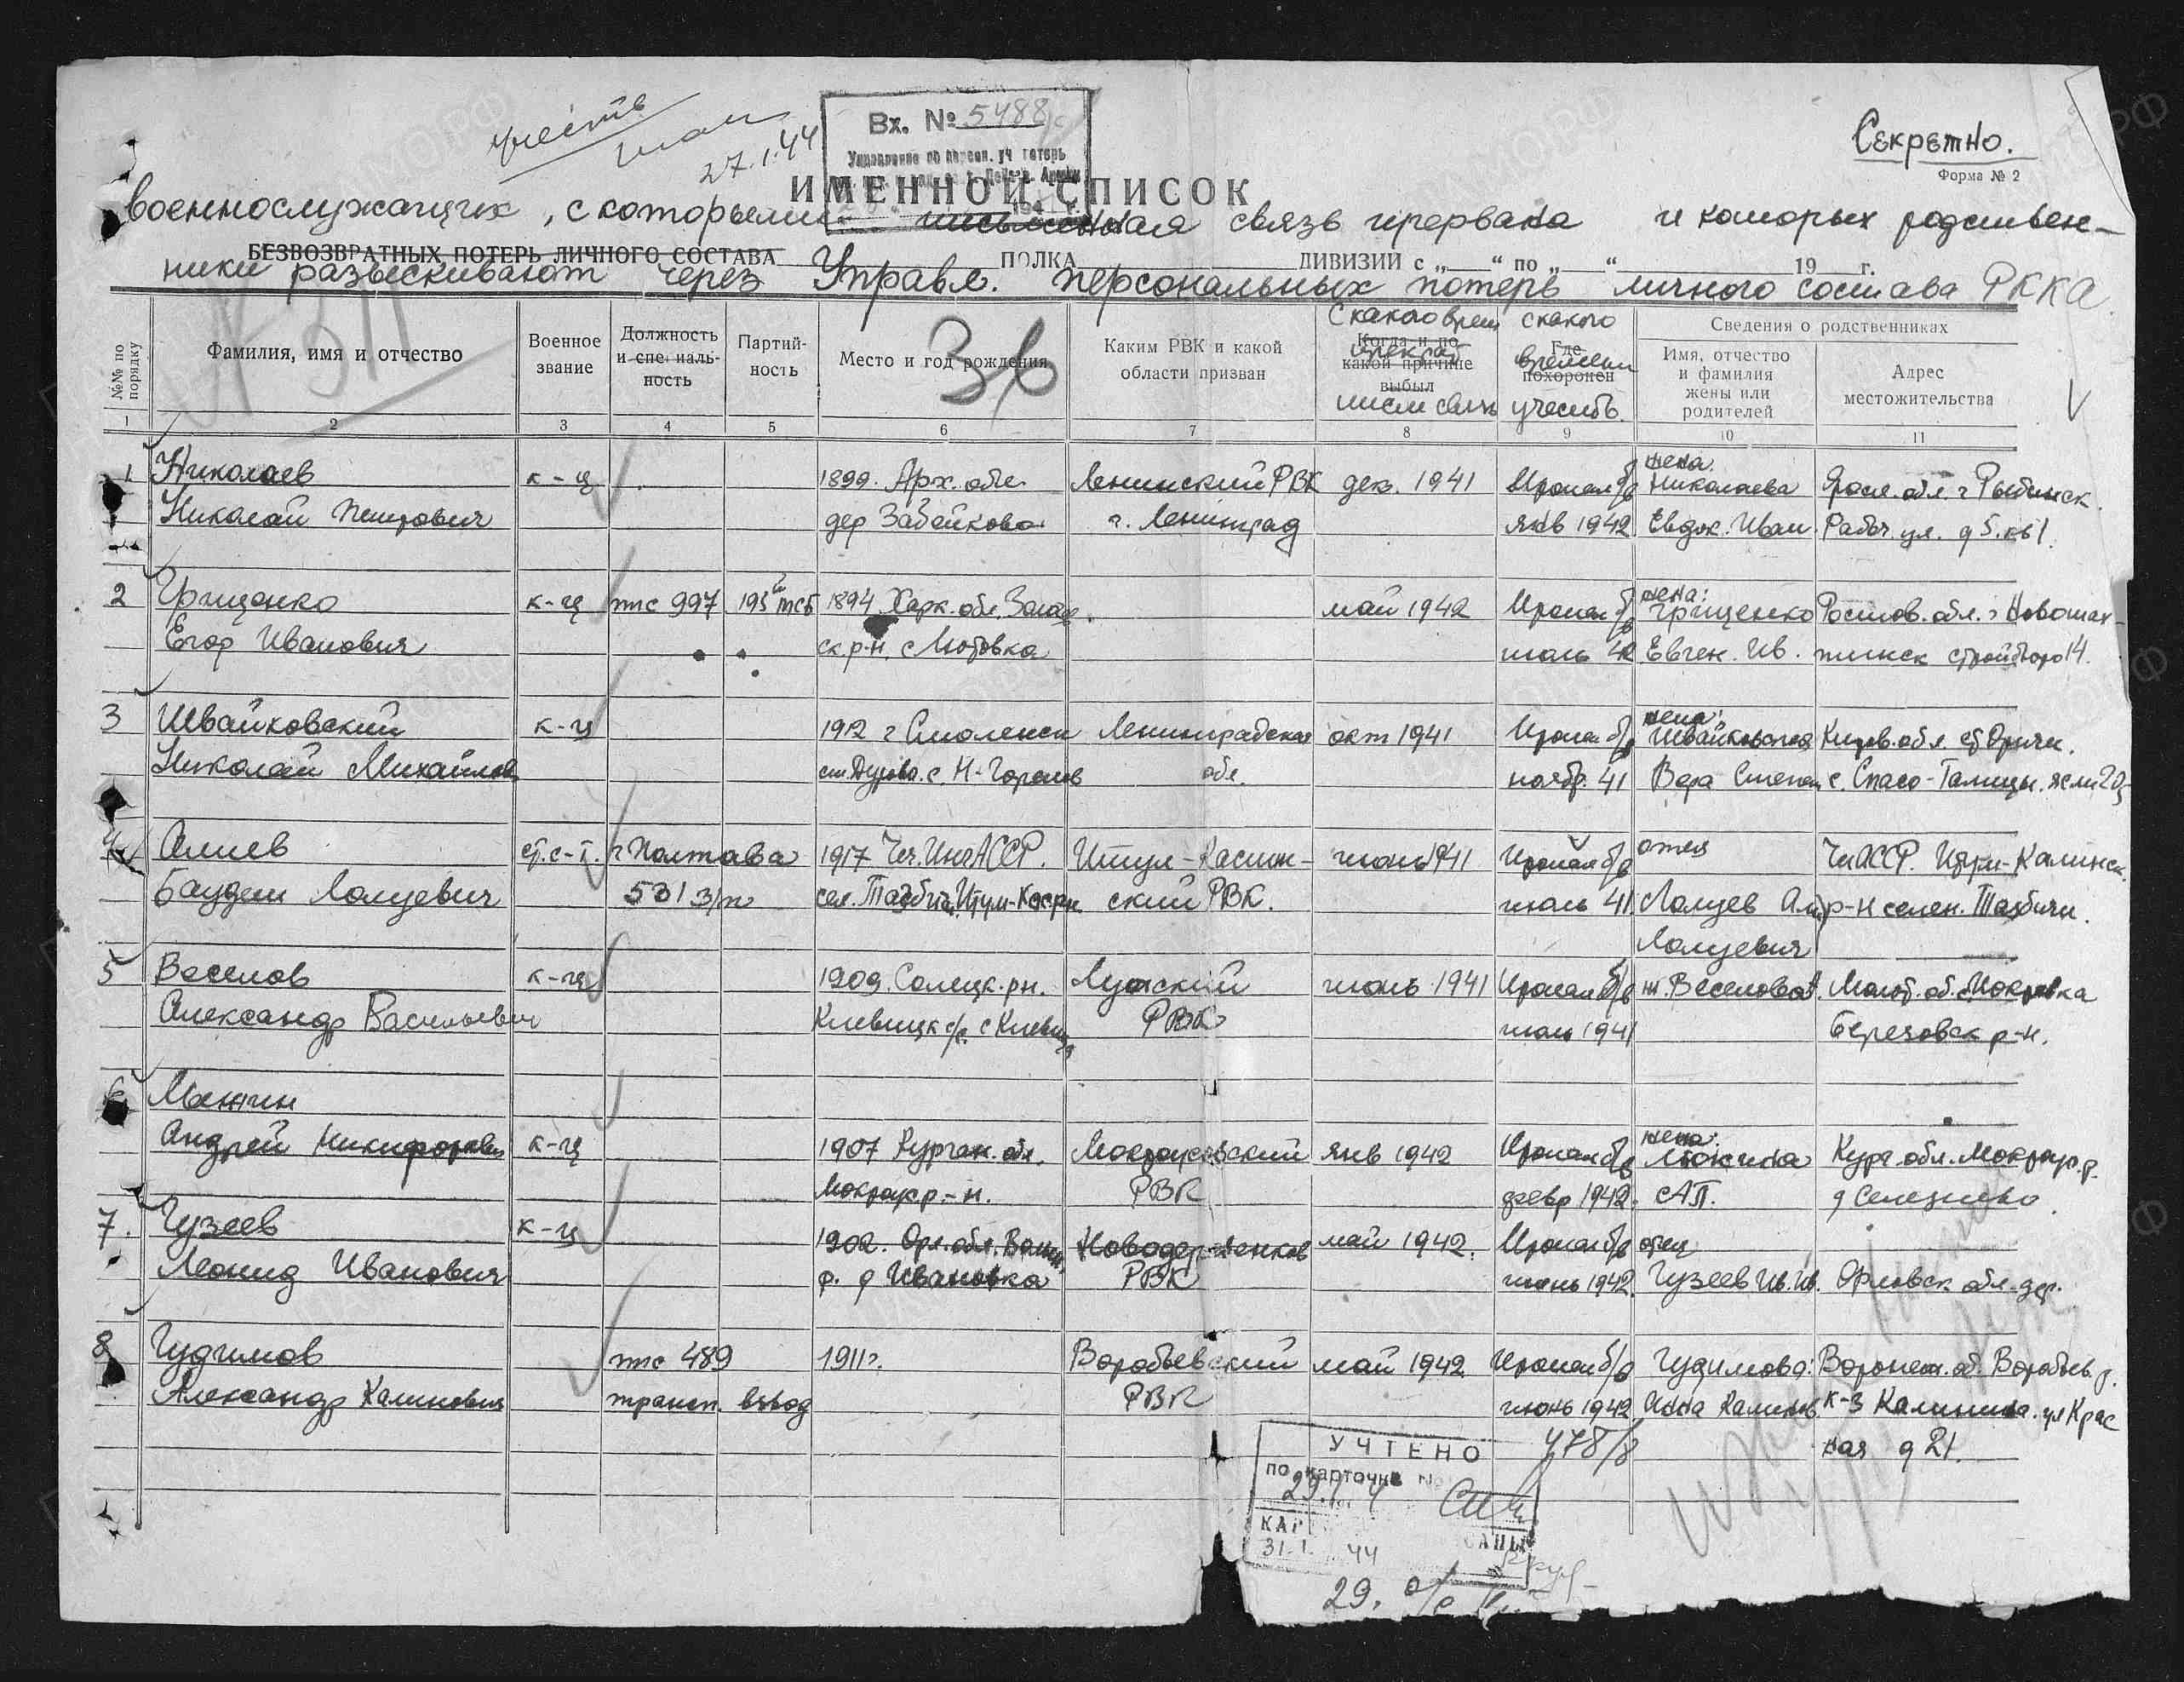 учесть
27.1.44
Вх. № 5488с
Управление по персон. уч. потерь
Секретно.
Форма № 2
ИМЕННОЙ СПИСОК
военнослужащих, с которыми письменная связь прервана и которых родствен-
БЕЗВОЗВРАТНЫХ ПОТЕРЬ ЛИЧНОГО СОСТАВА ПОЛКА ДИВИЗИИ с „ “ по „ “ 19 г.
ники разыскивают через Управл. персональных потерь личного состава РККА
№№ по порядку
Фамилия, имя и отчество
Военное звание
Должность и специальность
Партий-
ность
Место и год рождения
Каким РВК и какой
области призван
Когда и по
какой причине
выбыл
С какого врем
прекрат
письм связь
Где
похоронен
с какого
времени
учесть
Сведения о родственниках
Имя, отчество
и фамилия
жены или
родителей
Адрес
местожительства
1 2 3 4 5 6 7 8 9 10 11
1 Николаев к-ц 1899. Арх. обл. Ленинский РВК дек. 1941 Пропал б/в жена Николаева Яросл. обл. г Рыбинск.
Николай Петрович дер Забейково г. Ленинград янв 1942 Евдок. Иван. Рабоч. ул. д 5. кв 1.
2 Грищенко к-ц ппс 997 195й тсб 1894 Харк. обл. май 1942 Пропал б/в жена: Грищенко Ростов. обл. г Новошах-
Егор Иванович ск р-н. с Лютовка июль 42 Евген. Ив. тинск 14.
3 Швайковский к-ц 1912 г Смоленск Ленинградская окт 1941 Пропал б/в жена: Швайковская Киров. обл. ст Оричи.
Николай Михайлов обл. ноябр. 41 Вера Степан с. Спасо-Талицы.
4 Алиев ст. с-т. г Полтава 1917 Чеч. Инг АССР. Итум-Касин- июнь 1941 Пропал б/в отец ЧиАССР. Итум-Калинск.
Баудеш Лолуевич 531 з/п сел. Тазбичи. ский РВК. июль 41. Лолуев р-н селен. Тазбичи.
Лолуевич
5 Веселов к-ц 1909. Солецк. рн. Лужский июнь 1941 Пропал б/в ж. Веселова Молот. об. с. Покровка
Александр Васильевич Клевицк с/с. с РВК июль 1941 Березовск р-н.
6 Мокин
Андрей Никифорович к-ц 1907 Курган. обл. Мокроусовский янв 1942 Пропал б/в жена: Мокина Кург. обл. Мокроус. р.
Мокроус р-н. РВК февр 1942. А П. д Селезнево
7. Гузеев к-ц 1902. Орл. обл. май 1942. Пропал б/в отец
Леонид Иванович р. д Ивановка РВК июнь 1942. Гузеев Ив. Ив. Орловск. обл. дер.
8 Гудимов ппс 489 1911г. Воробьевский май 1942 Пропал б/в Гудимова: Воронеж. об. Воробьев р.
Александр Калинович трансп. взвод РВК июнь 1942 Анна Калинов. к-з Калинина. ул Крас
ная д 21.
У78/8
УЧТЕНО
по карточке №
29.1.
31.1. 44
29.